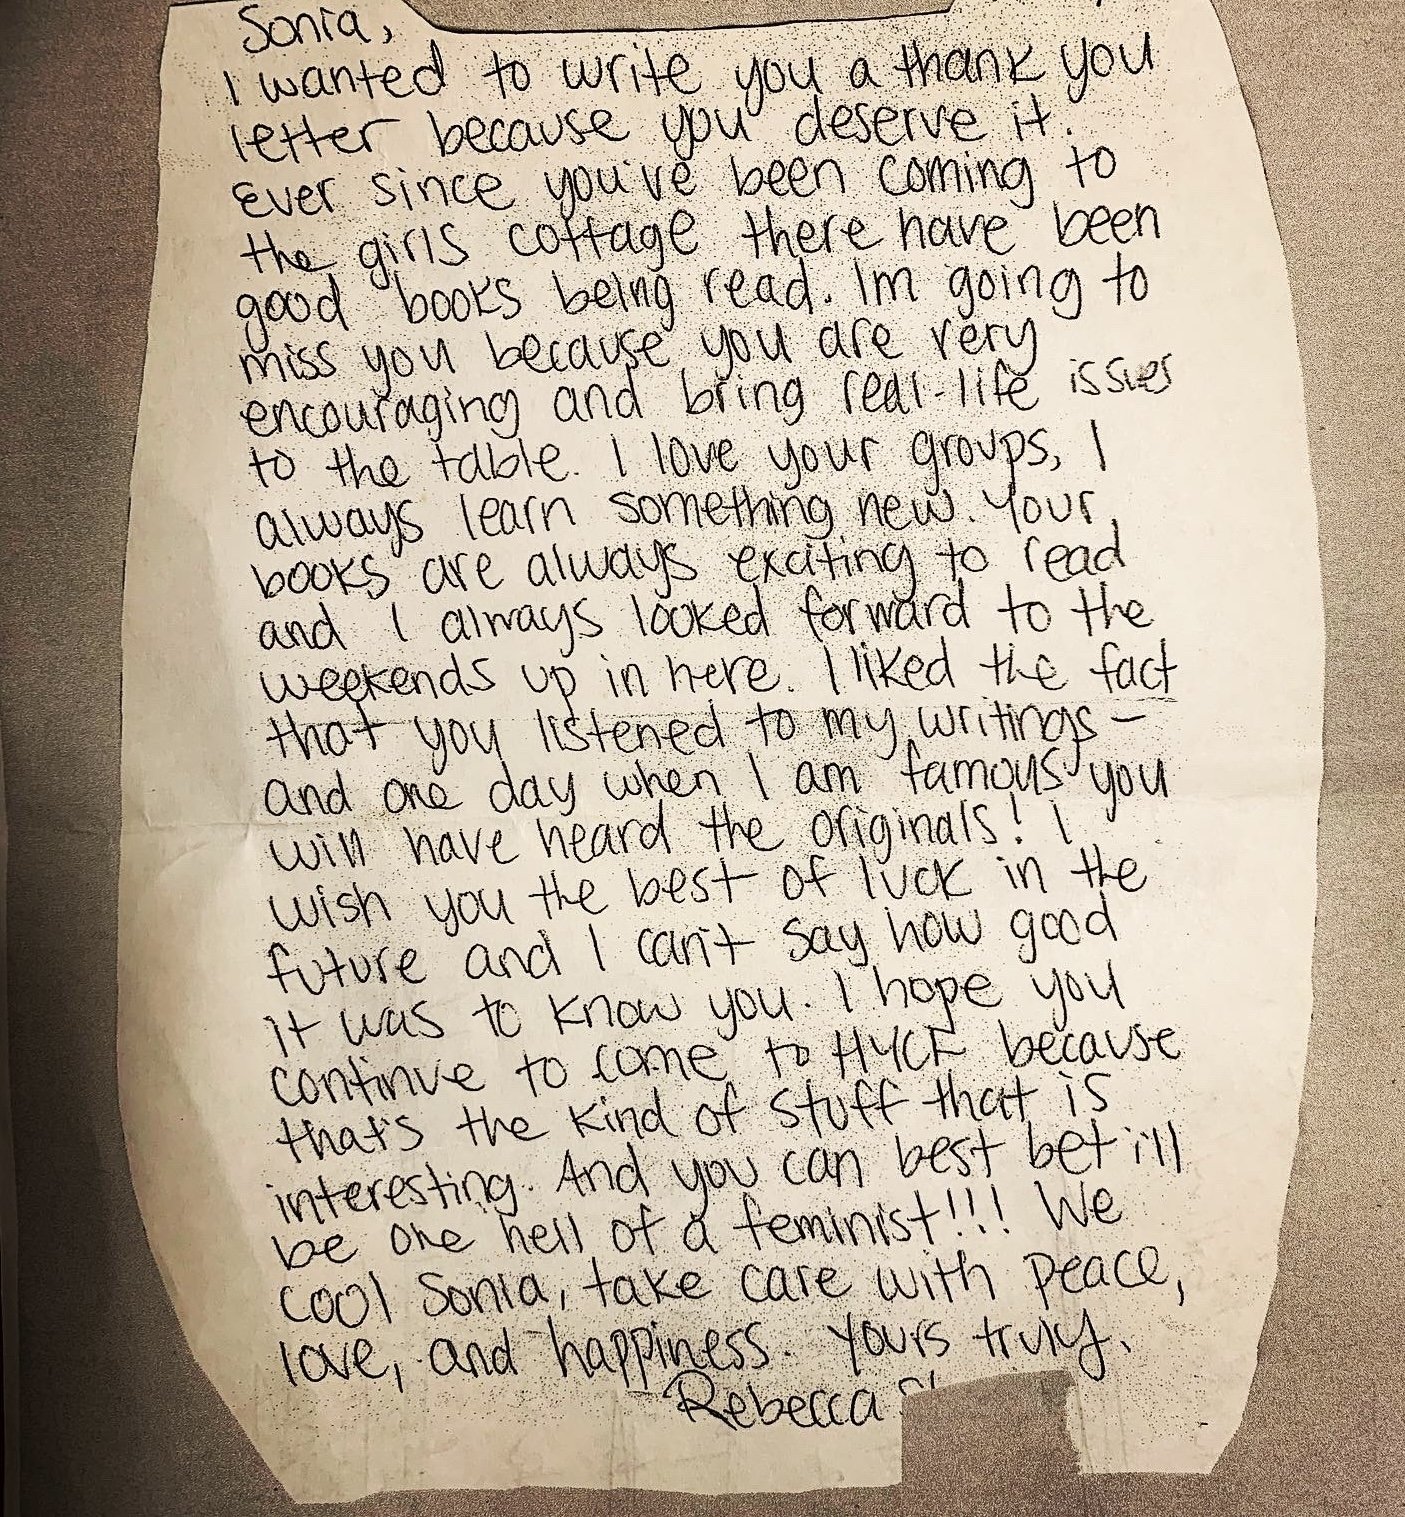 Sonia,
I wanted to write you a thank you
letter because you deserve it.
Ever since you've been coming to
the girls cottage there have been
good books being read. Im going to
miss you because you are very
encouraging and bring real-life issues
to the table. I love your groups, I
always learn something new. Your
books are always exciting to read
and I always looked forward to the
weekends up in here. I liked the fact
that you listened to my writings -
and one day when I am famous you
will have heard the originals! I
wish you the best of luck in the
future and I can't say how good
it was to know you. I hope you
continue to come to HYCF because
that's the kind of stuff that is
interesting. And you can best bet i'll
be one hell of a feminist!!! We
cool Sonia, take care with peace,
love, and happiness. Yours truly,
Rebecca